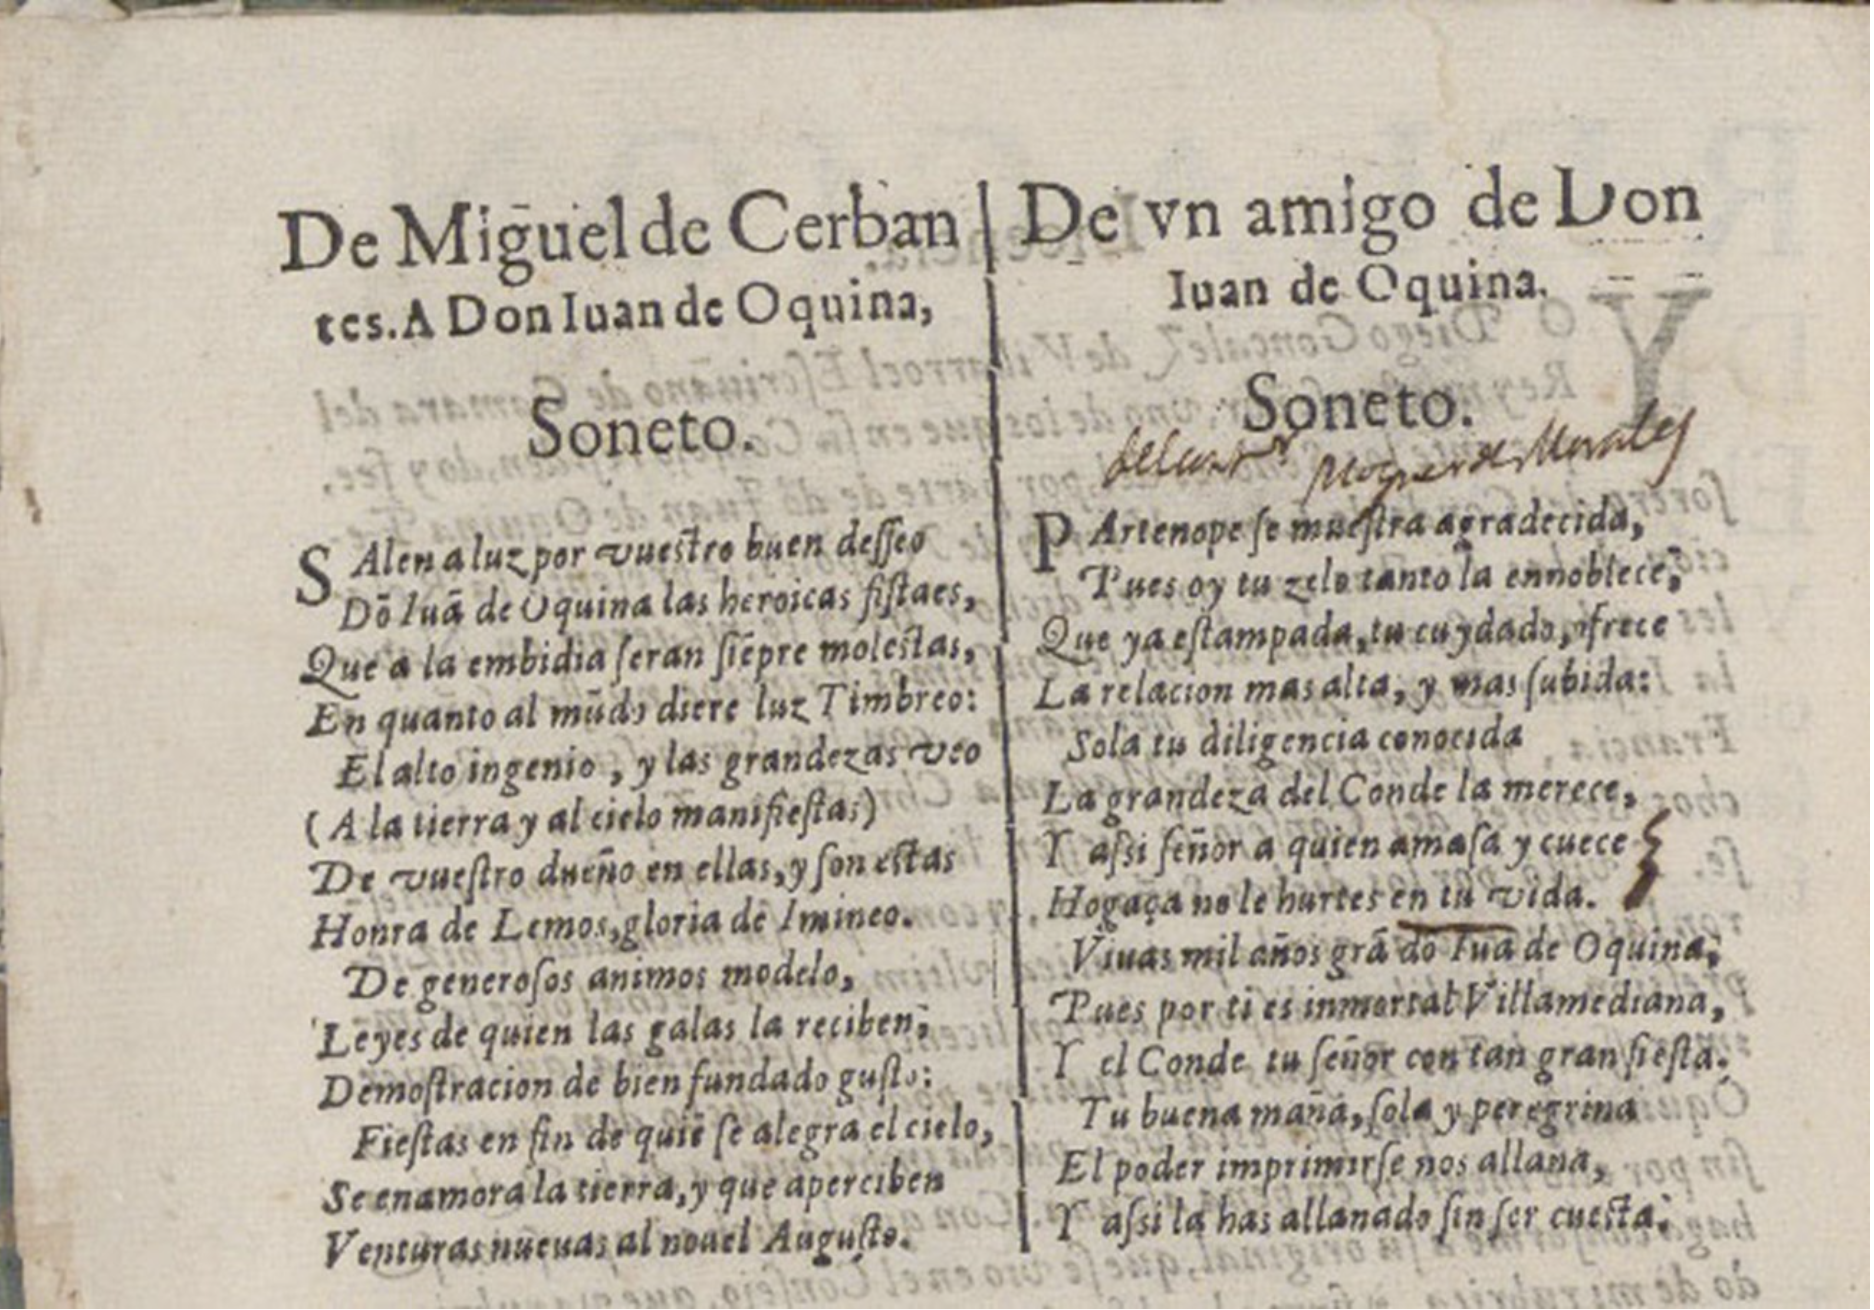 De Miguel de Cerban
tes. A Don Iuan de Oquina,
Soneto.
SAlen a luz por vuestro buen desseo
Dõ Iuã de Oquina las heroicas fistaes,
Que a la embidia seran siẽpre molestas,
En quanto al mũdo diere luz Timbreo:
El alto ingenio, y las grandezas veo
(A la tierra y al cielo manifiestas)
De vuestro dueño en ellas, y son estas
Honra de Lemos, gloria de Imineo.
De generosos animos modelo,
Leyes de quien las galas la reciben;
Demostracion de bien fundado gusto:
Fiestas en fin de quiẽ se alegra el cielo,
Se enamora la tierra, y que aperciben
Venturas nueuas al nouel Augusto.
De vn amigo de Don
Iuan de Oquina.
Soneto.
Morales
PArtenope se muestra agradecida,
Pues oy tu zelo tanto la ennoblece;
Que ya estampada, tu cuydado, ofrece
La relacion mas alta, y mas subida:
Sola tu diligencia conocida
La grandeza del Conde la merece,
Y assi señor a quien amasa y cuece
Hogaça no le hurtes en tu vida.
Viuas mil años grã dõ Iuã de Oquina;
Pues por ti es inmortal Villamediana,
Y el Conde tu señor con tan gran fiesta.
Tu buena maña, sola y peregrina
El poder imprimirse nos allana,
Y assi la has allanado sin ser cuesta.